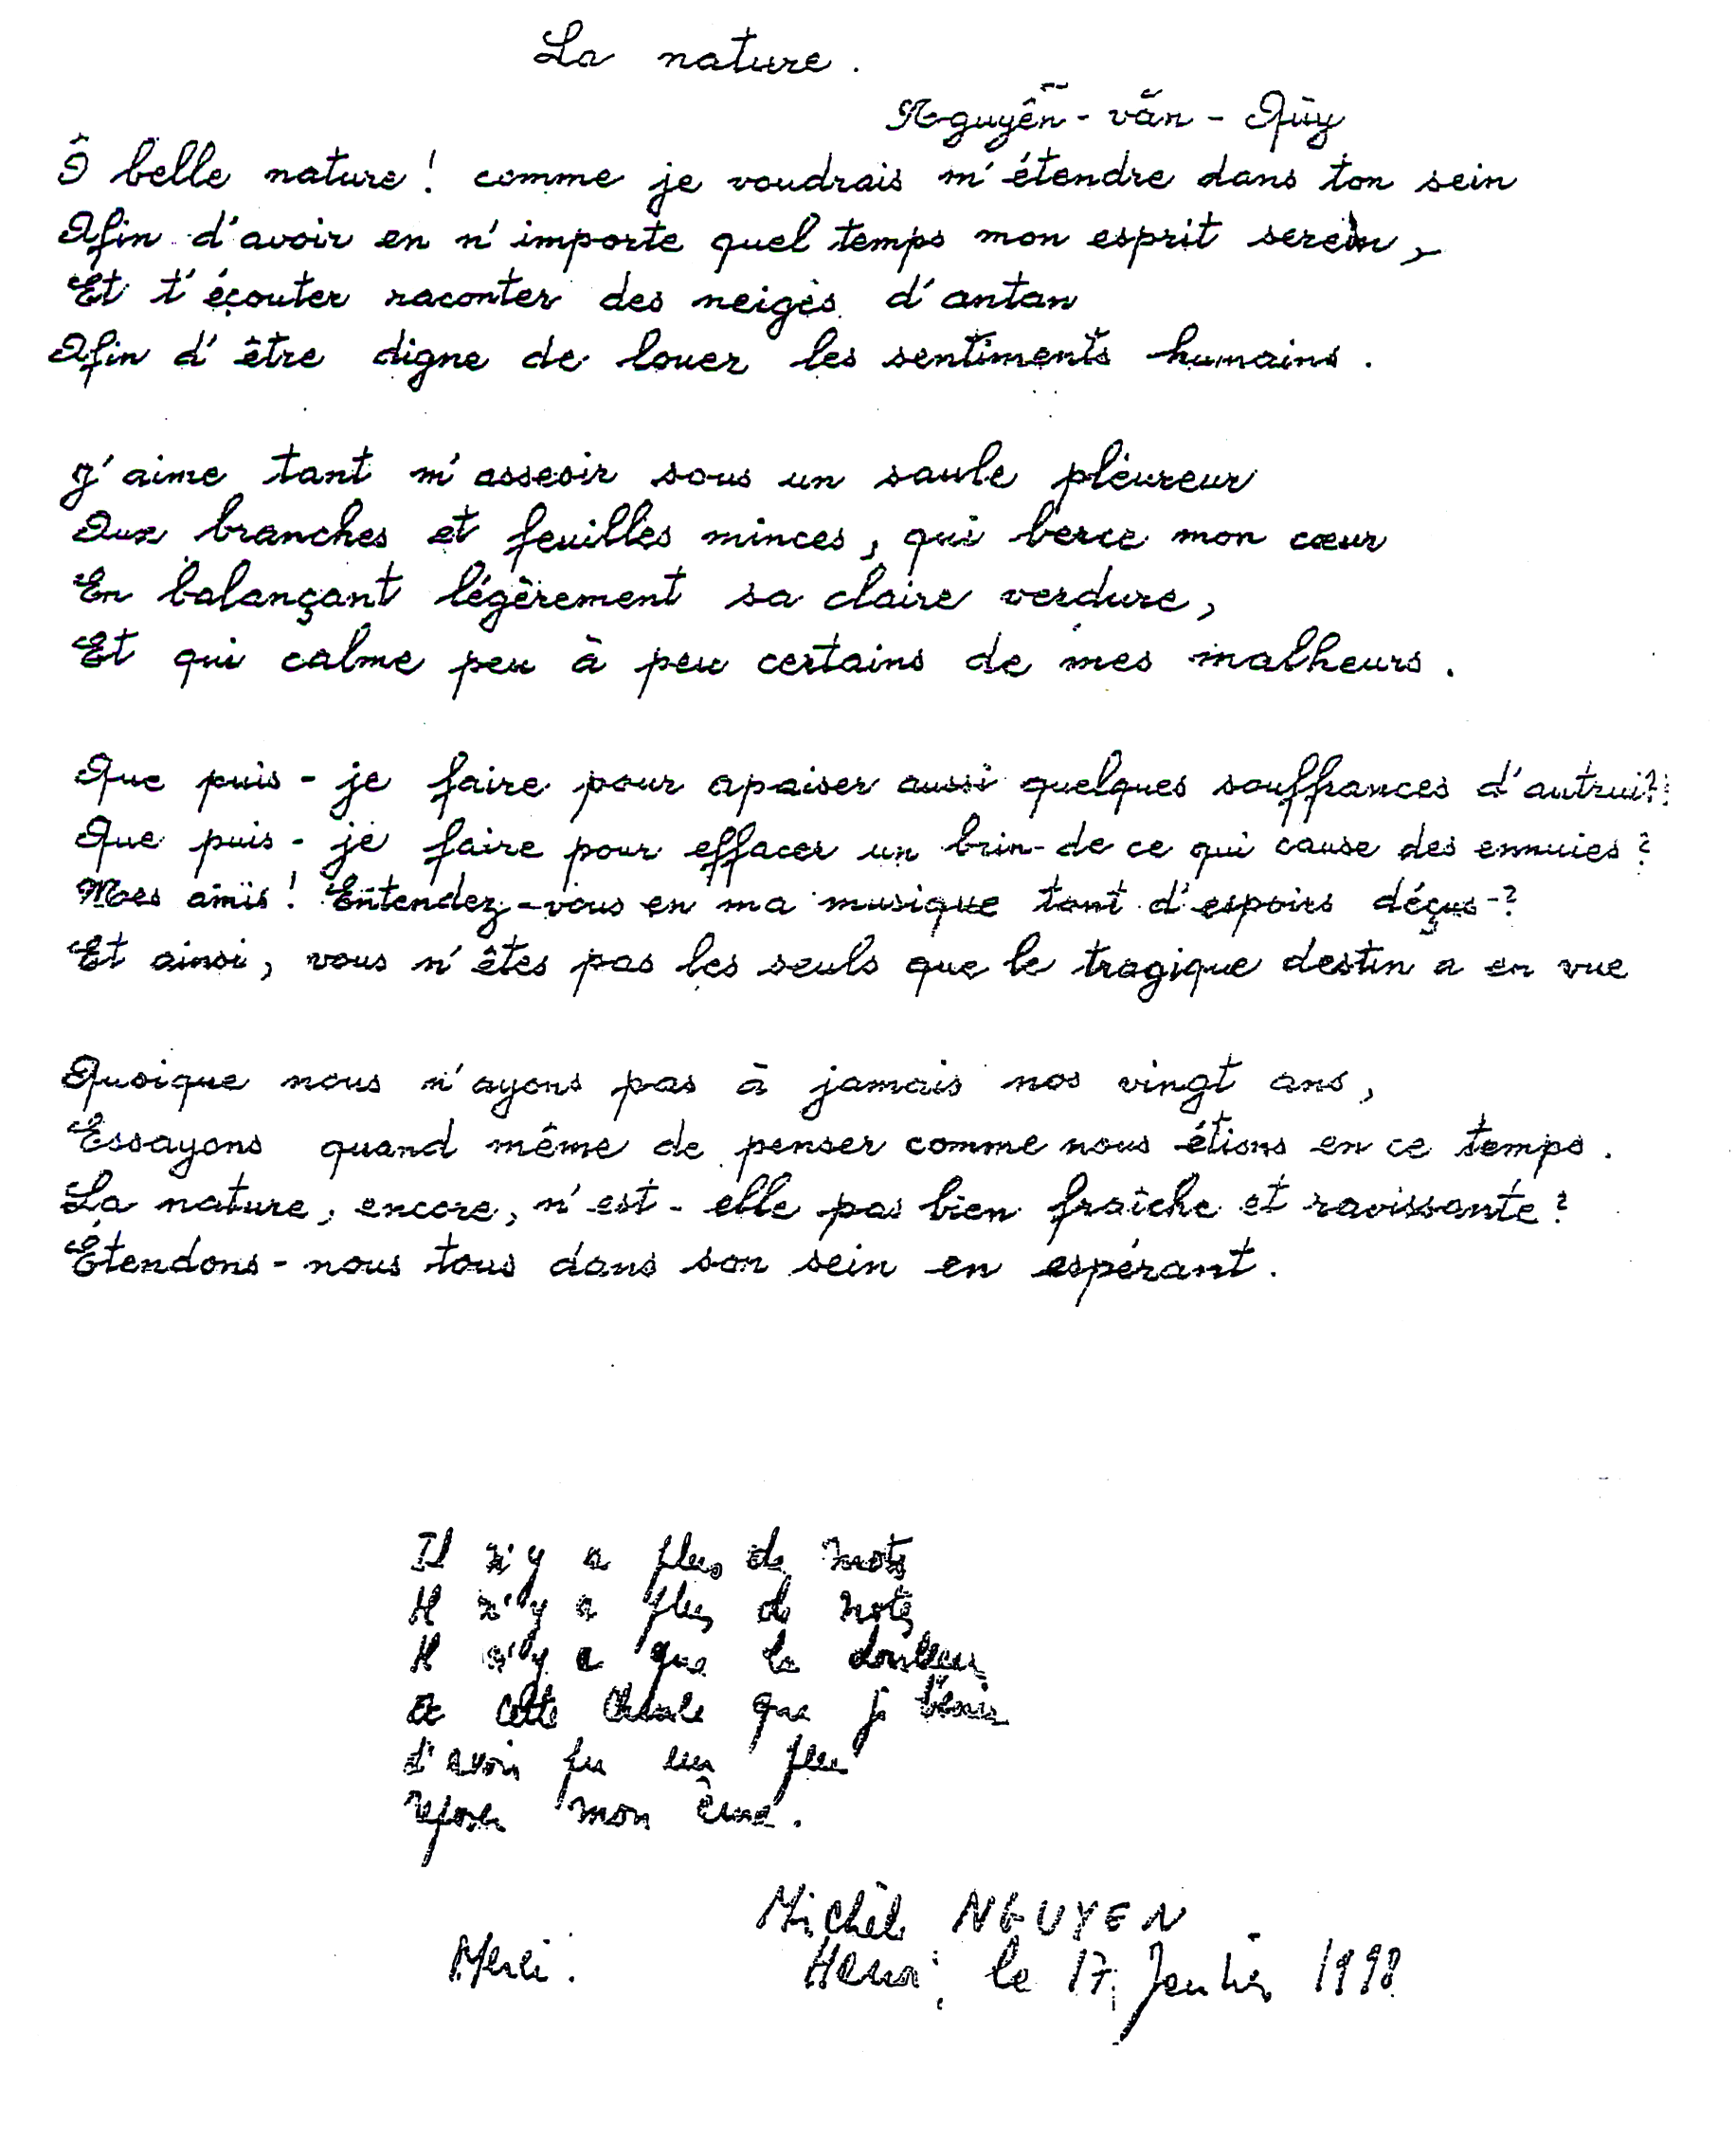 La nature.
Nguyễn - văn - Qùy
Ô belle nature ! comme je voudrais m'étendre dans ton sein
Afin d'avoir en n'importe quel temps mon esprit serein,
Et t'écouter raconter des neiges d'antan
Afin d'être digne de louer les sentiments humains.
J'aime tant m'asseoir sous un saule pleureur
Aux branches et feuilles minces, qui berce mon cœur
En balançant légèrement sa claire verdure,
Et qui calme peu à peu certains de mes malheurs.
Que puis-je faire pour apaiser aussi quelques souffrances d'autrui?
Que puis-je faire pour effacer un brin de ce qui cause des ennuies ?
Mes amis ! Entendez-vous en ma musique tant d'espoirs déçus ?
Et ainsi, vous n'êtes pas les seuls que le tragique destin a en vue
Quoique nous n'ayons pas à jamais nos vingt ans,
Essayons quand même de penser comme nous étions en ce temps.
La nature, encore, n'est-elle pas bien fraîche et ravissante ?
Étendons-nous tous dans son sein en espérant.
Il n'y a plus de mots
Il n'y a plus de notes
Il n'y a que la douleur
Et cette que je
d'avoir pu un peu
reposer mon âme.
Michèle NGUYEN
Merci. le 17 Janvier 1998